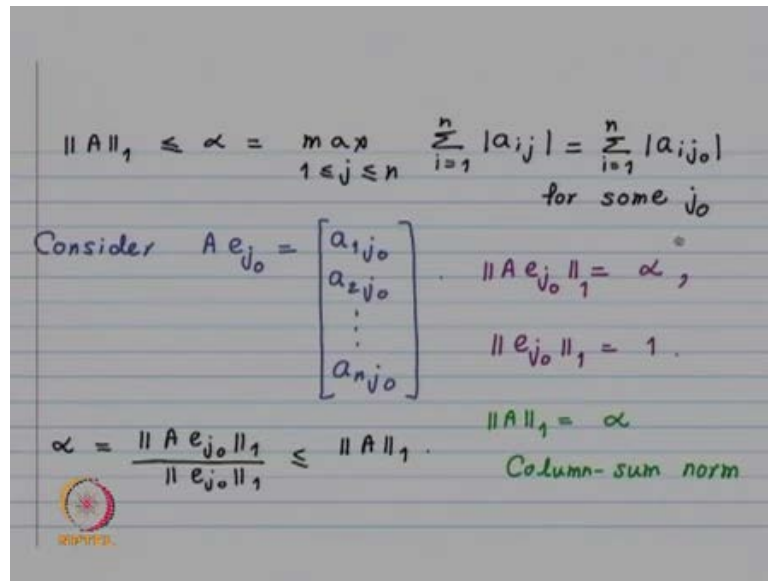 ‖A‖₁ ≤ α = max 1 ≤ j ≤ n ∑ⁿᵢ₌₁ |aᵢⱼ| = ∑ⁿᵢ₌₁ |aᵢⱼ₀|
for some j₀
Consider A eⱼ₀ = [a₁ⱼ₀ a₂ⱼ₀ ⋮ aₙⱼ₀] . ‖A eⱼ₀‖₁ = α ,
‖eⱼ₀‖₁ = 1 .
α = ‖A eⱼ₀‖₁ / ‖eⱼ₀‖₁ ≤ ‖A‖₁ .
‖A‖₁ = α
Column-sum norm
NPTEL